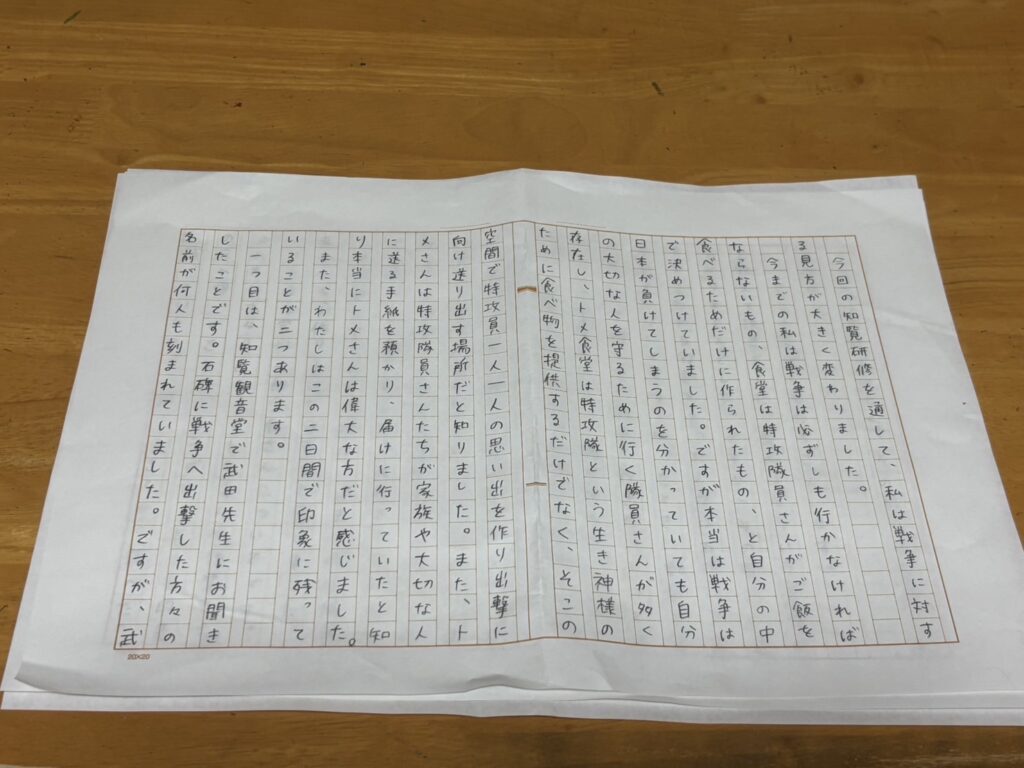 今回の知覧研修を通して、私は戦争に対す
る見方が大きく変わりました。
今までの私は戦争は必ずしも行かなければ
ならないもの、食堂は特攻隊員さんがご飯を
食べるためだけに作られたもの、と自分の中
で決めつけていました。ですが本当は戦争は
日本が負けてしまうのを分かっていても自分
の大切な人を守るために行く隊員さんが多く
存在し、トメ食堂は特攻隊という生き神様の
ために食べ物を提供するだけでなく、そこの
空間で特攻員一人一人の思い出を作り出撃に
向け送り出す場所だと知りました。また、ト
メさんは特攻隊員さんたちが家族や大切な人
に送る手紙を預かり、届けに行っていたと知
り本当にトメさんは偉大な方だと感じました。
また、わたしはこの二日間で印象に残って
いることが二つあります。
一つ目は、知覧観音堂で武田先生にお聞き
したことです。石碑に戦争へ出撃した方々の
名前が何人も刻まれていました。ですが、武
20×20